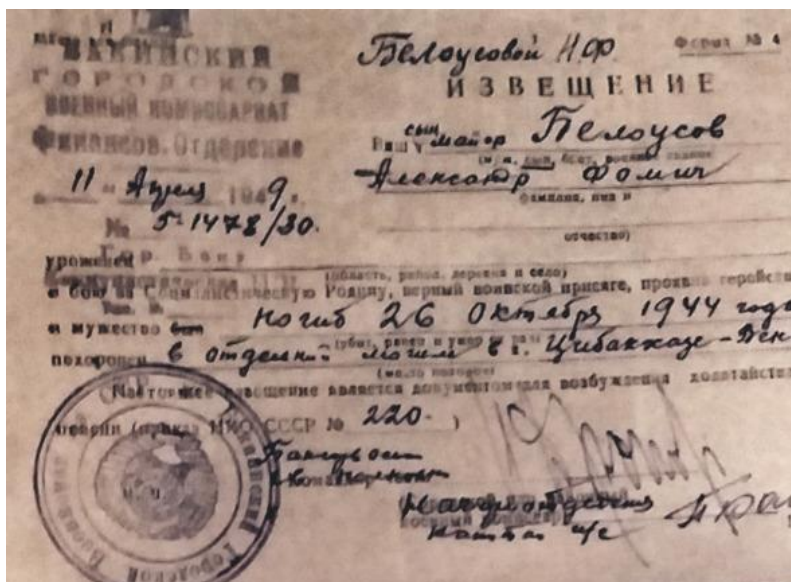 БАКИНСКИЙ
ГОРОДСКОЙ
ВОЕННЫЙ КОМИССАРИАТ
Финансов. Отделение
11 " Апреля 1949 г.
№ 5-1478/30.
Белоусовой Н.Ф.
Форма № 4
ИЗВЕЩЕНИЕ
Ваш сын майор Белоусов
Александр Фомич
фамилия, имя и
отчество)
уроженец Гор. Баку
(область, район, деревня и село)
в бою за Социалистическую Родину, верный воинской присяге, проявив геройств
и мужество был погиб 26 Октября 1944 года
похоронен в отдельной могиле в г. Цибакхазе-Вен
Настоящее извещение является документом для возбуждения ходатайств
пенсии (приказ НКО СССР № 220- )
М. П.
Нач. финотделения
военный комиссар
капитан и/с